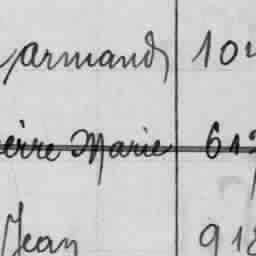 Armand 104
ierre Marie 612
Jean 918